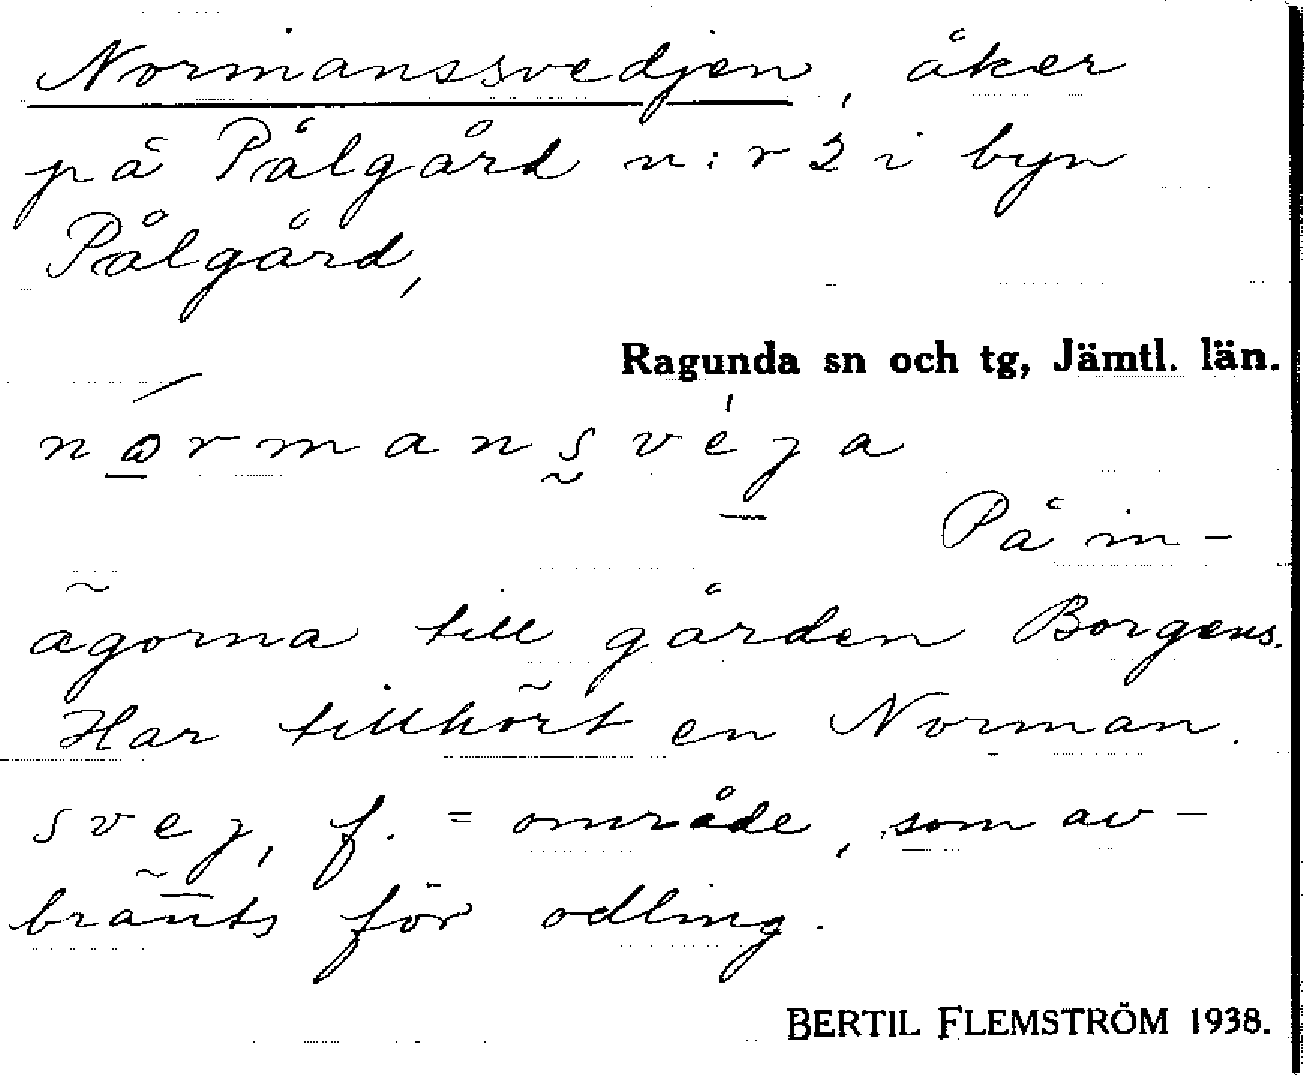 Normanssvedjen, åker
på Pålgård n:r 2 i byn
Pålgård,
Ragunda sn och tg, Jämtl. län.
nɷrmansvéja
På in-
ägorna till gården Borgens.
Har tillhört en Norman.
svej, f. = område, som av-
bränts för odling.
BERTIL FLEMSTRÖM 1938.